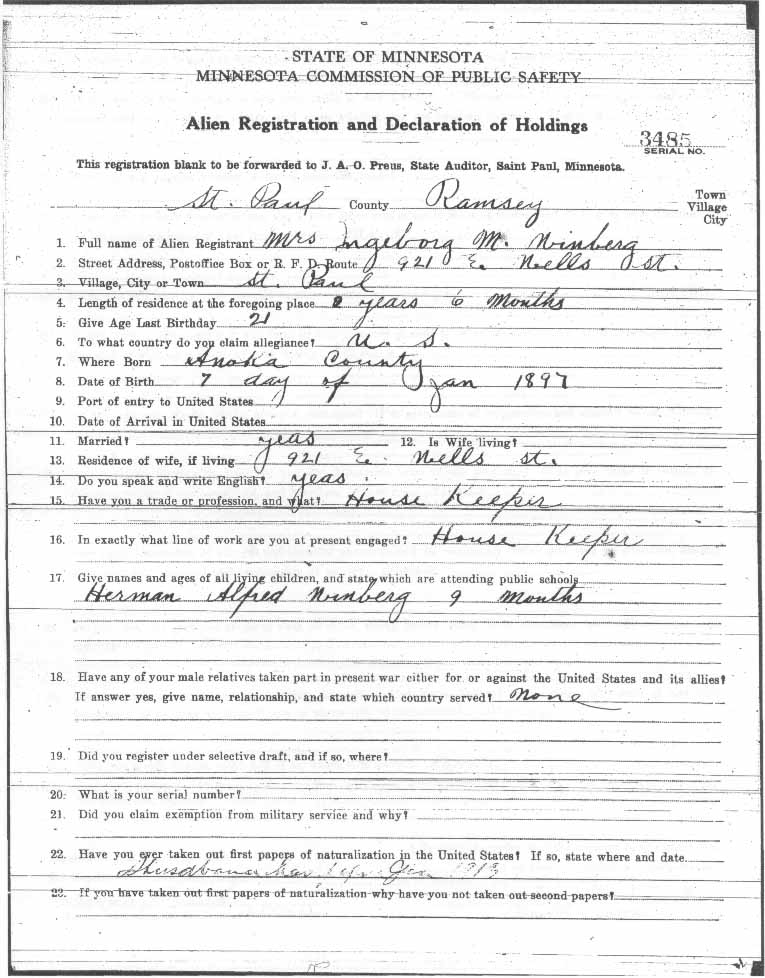 STATE OF MINNESOTA
MINNESOTA COMMISSION OF PUBLIC SAFETY
Alien Registration and Declaration of Holdings
3485
SERIAL NO.
This registration blank to be forwarded to J. A. O. Preus, State Auditor, Saint Paul, Minnesota.
St. Paul County Ramsey Town
Village
City
1. Full name of Alien Registrant Mrs Ingeborg M. Ninberg
2. Street Address, Postoffice Box or R. F. D. Route 921 E. Nells St.
3. Village, City or Town St. Paul
4. Length of residence at the foregoing place 2 years 6 Months
5. Give Age Last Birthday 21
6. To what country do you claim allegiance? U. S.
7. Where Born Anoka County
8. Date of Birth 7 day of Jan 1897
9. Port of entry to United States
10. Date of Arrival in United States
11. Married? yeas 12. Is Wife living?
13. Residence of wife, if living 921 E. Nells St.
14. Do you speak and write English? yeas.
15. Have you a trade or profession, and what? House Keeper
16. In exactly what line of work are you at present engaged? House Keeper
17. Give names and ages of all living children, and state which are attending public schools
Herman Alfred Ninberg 9 months
18. Have any of your male relatives taken part in present war either for or against the United States and its allies?
If answer yes, give name, relationship, and state which country served? None
19. Did you register under selective draft, and if so, where?
20. What is your serial number?
21. Did you claim exemption from military service and why?
22. Have you ever taken out first papers of naturalization in the United States? If so, state where and date
23. If you have taken out first papers of naturalization why have you not taken out second papers?